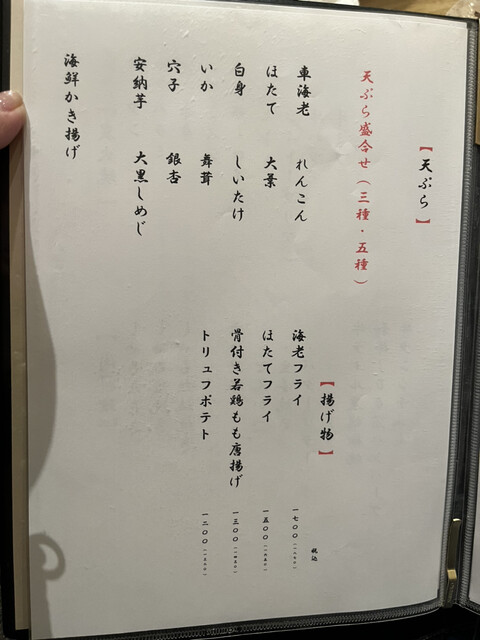 【天ぷら】
天ぷら盛合せ(三種・五種)
車海老 れんこん
ほたて 大葉
白身 しいたけ
いか 舞茸
穴子 銀杏
安納芋 大黒しめじ
海鮮かき揚げ
【揚げ物】
税込
海老フライ 一七〇〇
ほたてフライ 一五〇〇
骨付き若鶏もも唐揚げ 一三〇〇
トリュフポテト 一二〇〇